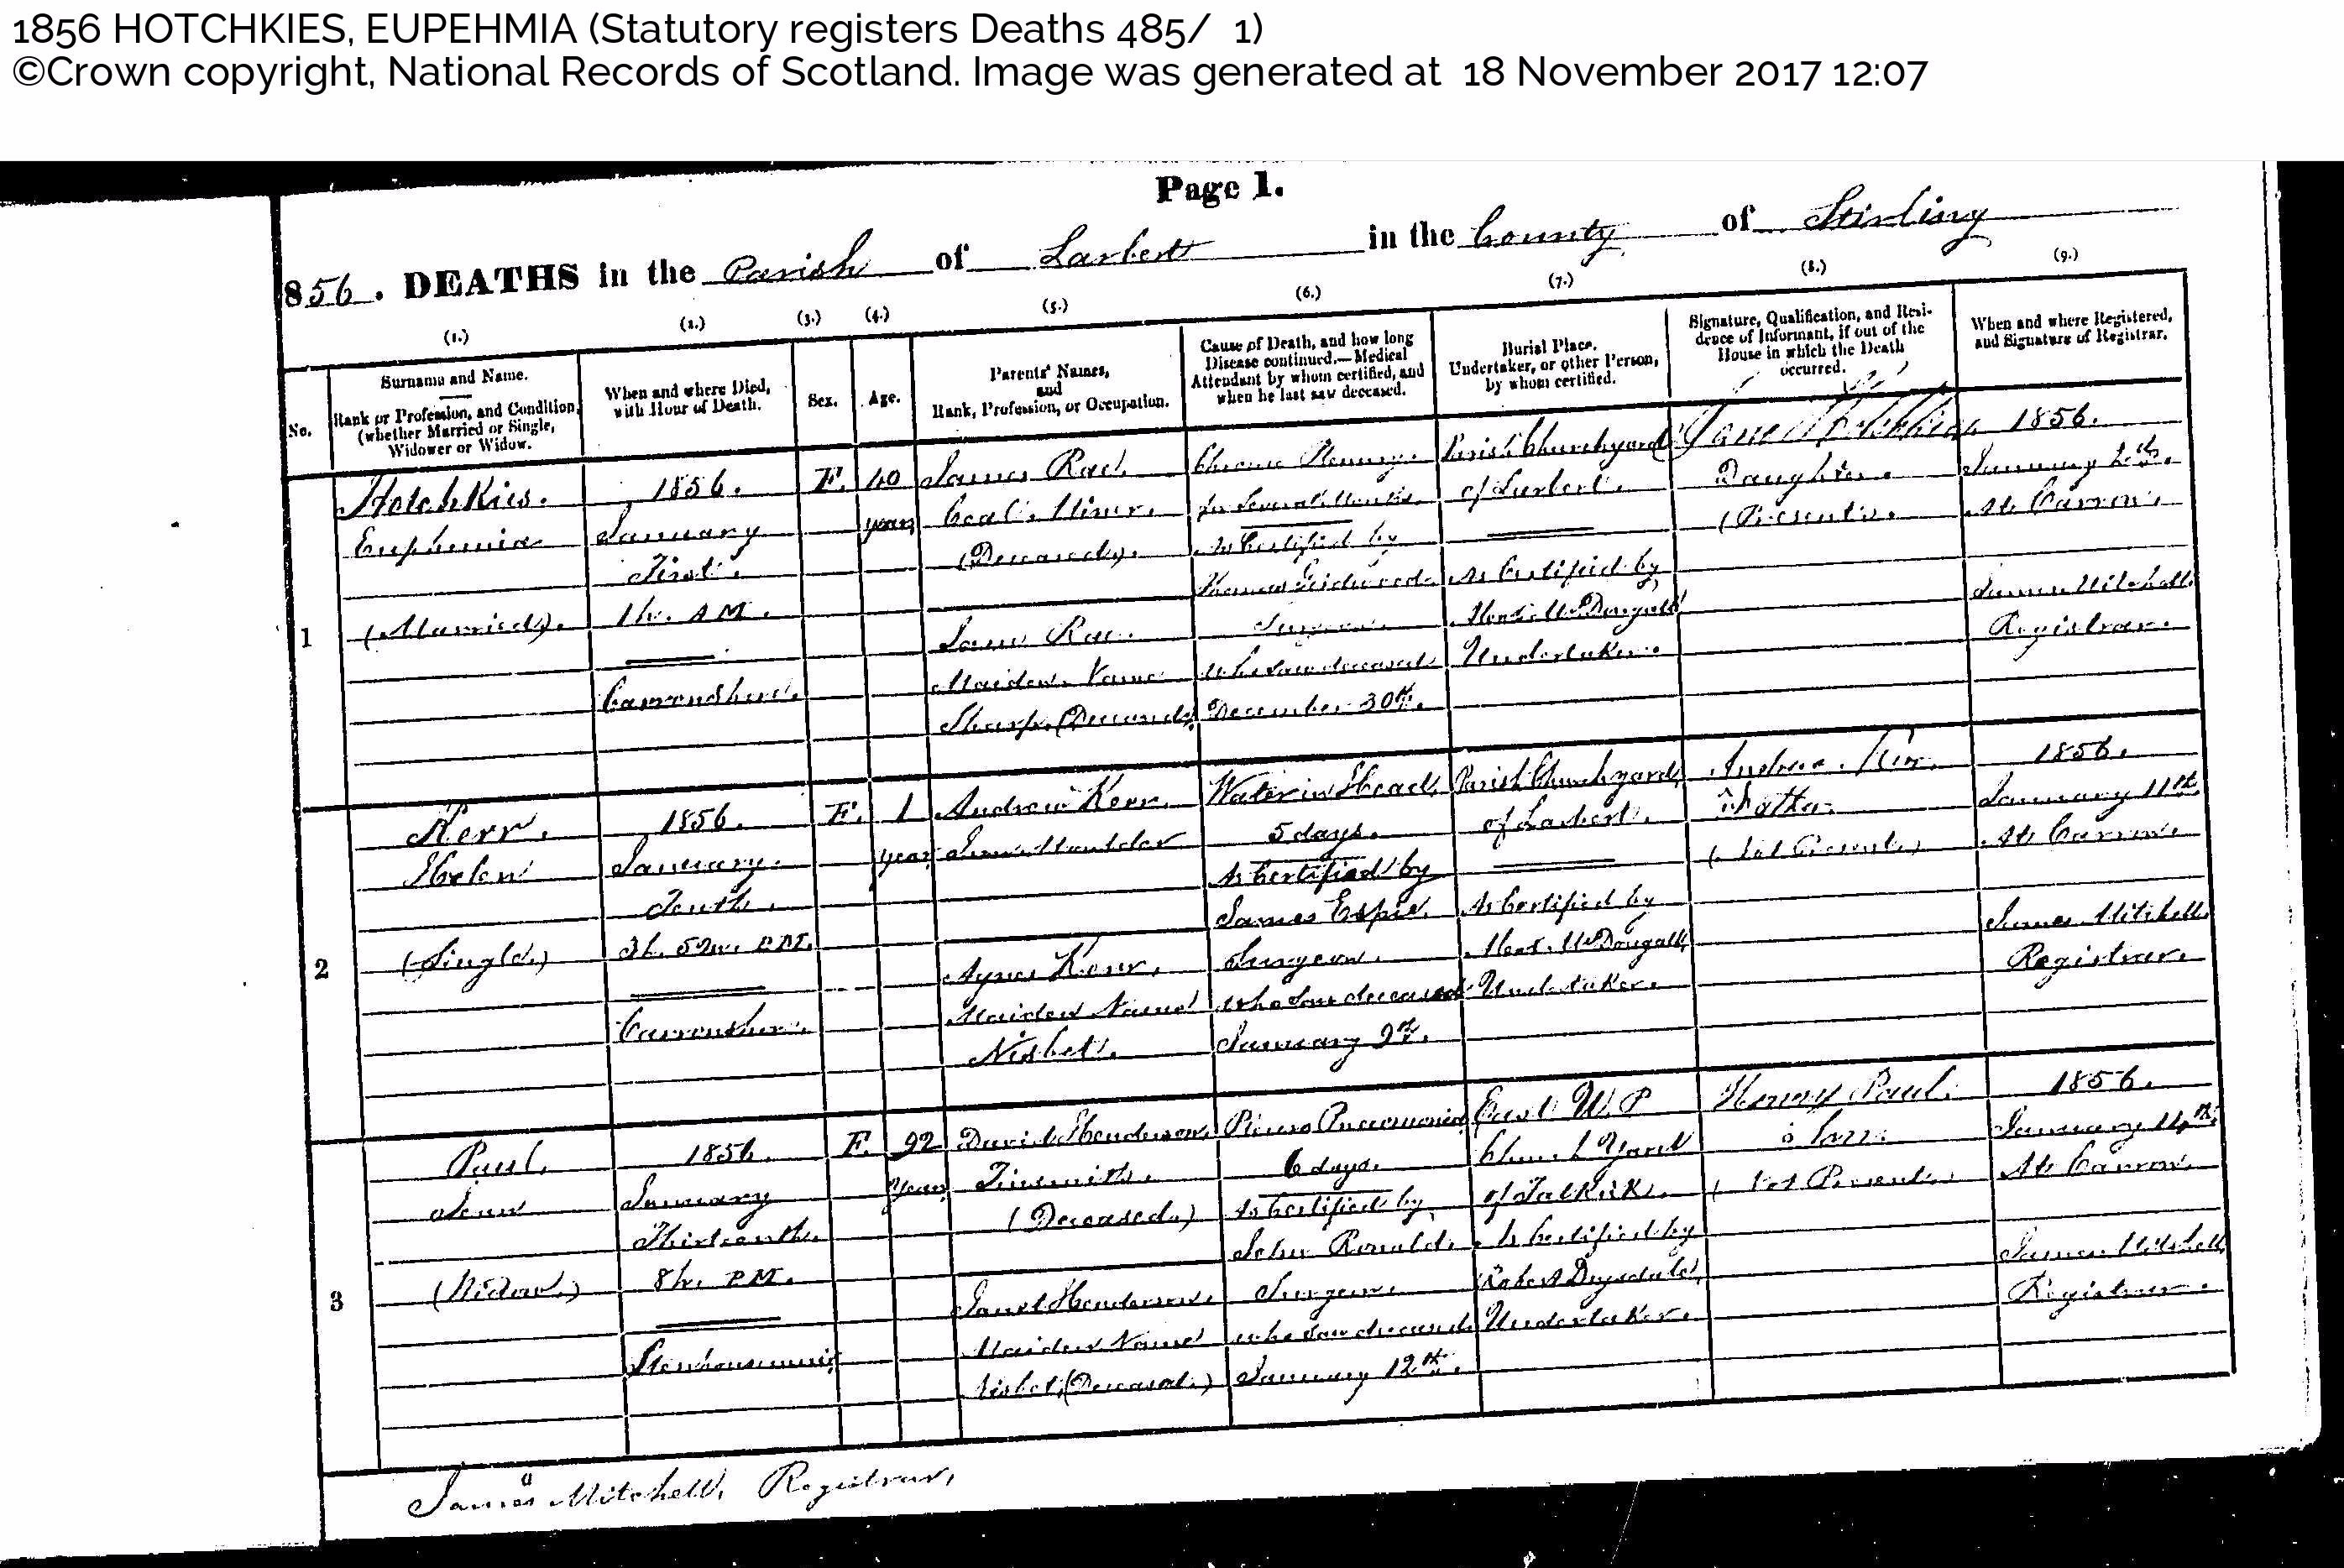 1856 HOTCHKIES, EUPEHMIA (Statutory registers Deaths 485/ 1)
©Crown copyright, National Records of Scotland. Image was generated at 18 November 2017 12:07
Page 1.
856. DEATHS in the Parish of Larbert in the County of Stirling
(1.) (2.) (3.) (4.) (5.) (6.) (7.) (8.) (9.)
No.
Surname and Name.
Rank or Profession, and Condition,
(whether Married or Single,
Widower or Widow.
When and where Died,
with Hour of Death.
Sex.
Age.
Parents' Names,
and
Rank, Profession, or Occupation.
Cause of Death, and how long
Disease continued.—Medical
Attendant by whom certified, and
when he last saw deceased.
Burial Place.
Undertaker, or other Person,
by whom certified.
Signature, Qualification, and Resi-
dence of Informant, if out of the
House in which the Death
occurred.
When and where Registered,
and Signature of Registrar.
1
Hotchkies.
Euphemia
(Married).
1856.
January
First.
1h. A.M.
Carronshore.
F.
40
years
James Rae.
Coal Miner.
(Deceased).
Jane Rae.
Maiden Name
Sharp. (Deceased).
Chronic Pleurisy.
for Several Months.
As Certified by
Thomas Girdwood.
Surgeon.
who saw deceased
December 30th.
Parish Churchyard
of Larbert.
As Certified by
McDougall
Undertaker.
Jane Hotchkies
Daughter.
(Present).
1856.
January 2nd.
At Carron.
James Mitchell
Registrar.
2
Kerr.
Helen
(Single.)
1856.
January.
Tenth.
3h. 52m. P.M.
Carronshore.
F.
1
year
Andrew Kerr.
Iron Moulder
Agnes Kerr.
Maiden Name
Nisbet.
Water in Head.
5 days.
As Certified by
James Espie.
Surgeon.
who saw deceased
January 9th.
Parish Churchyard
of Larbert.
As Certified by
McDougall
Undertaker.
Andrew Kerr.
Father
(Not Present.)
1856.
January 11th.
At Carron.
James Mitchell
Registrar.
3
Paul.
Jean
(Widow.)
1856.
January
Thirteenth.
8h. P.M.
Stenhousemuir
F.
92
Years
David Henderson.
Tinsmith.
(Deceased.)
Janet Henderson.
Maiden Name
Nisbet. (Deceased.)
Pleuro Pneumonia
6 days.
As Certified by
John Ronald.
Surgeon.
who saw deceased
January 12th.
East U.P.
Church Yard
of Falkirk.
As Certified by
Robert Drysdale,
Undertaker.
Henry Paul.
Son.
(Not Present.)
1856.
January 14th.
At Carron.
James Mitchell
Registrar.
James Mitchell, Registrar,